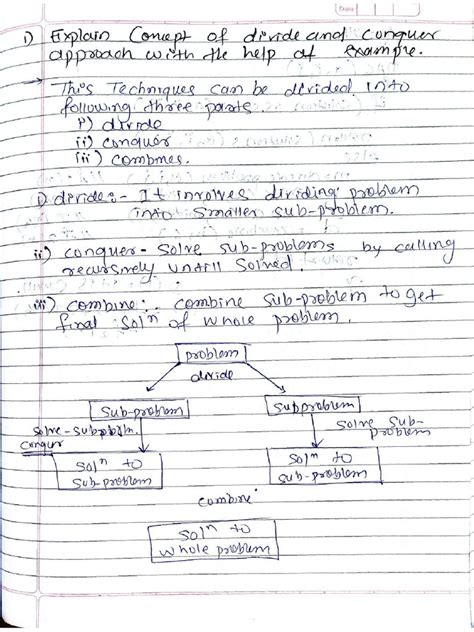 1) Explain Concept of divide and conquer
approach with the help of example.
→ This Techniques can be divided into
following three parts.
i) divide
ii) conquer
iii) combines.
i) divide :- It involves dividing problem
into smaller sub-problem.
ii) conquer - Solve sub-problems by calling
recursively untill solved.
iii) combine :- combine sub-problem to get
final solⁿ of whole problem.
problem
divide
sub-problem
subproblem
solve-subpblm.
conqur
solve sub-
problem
solⁿ to
sub-problem
solⁿ to
sub-problem
combine
solⁿ to
whole problem